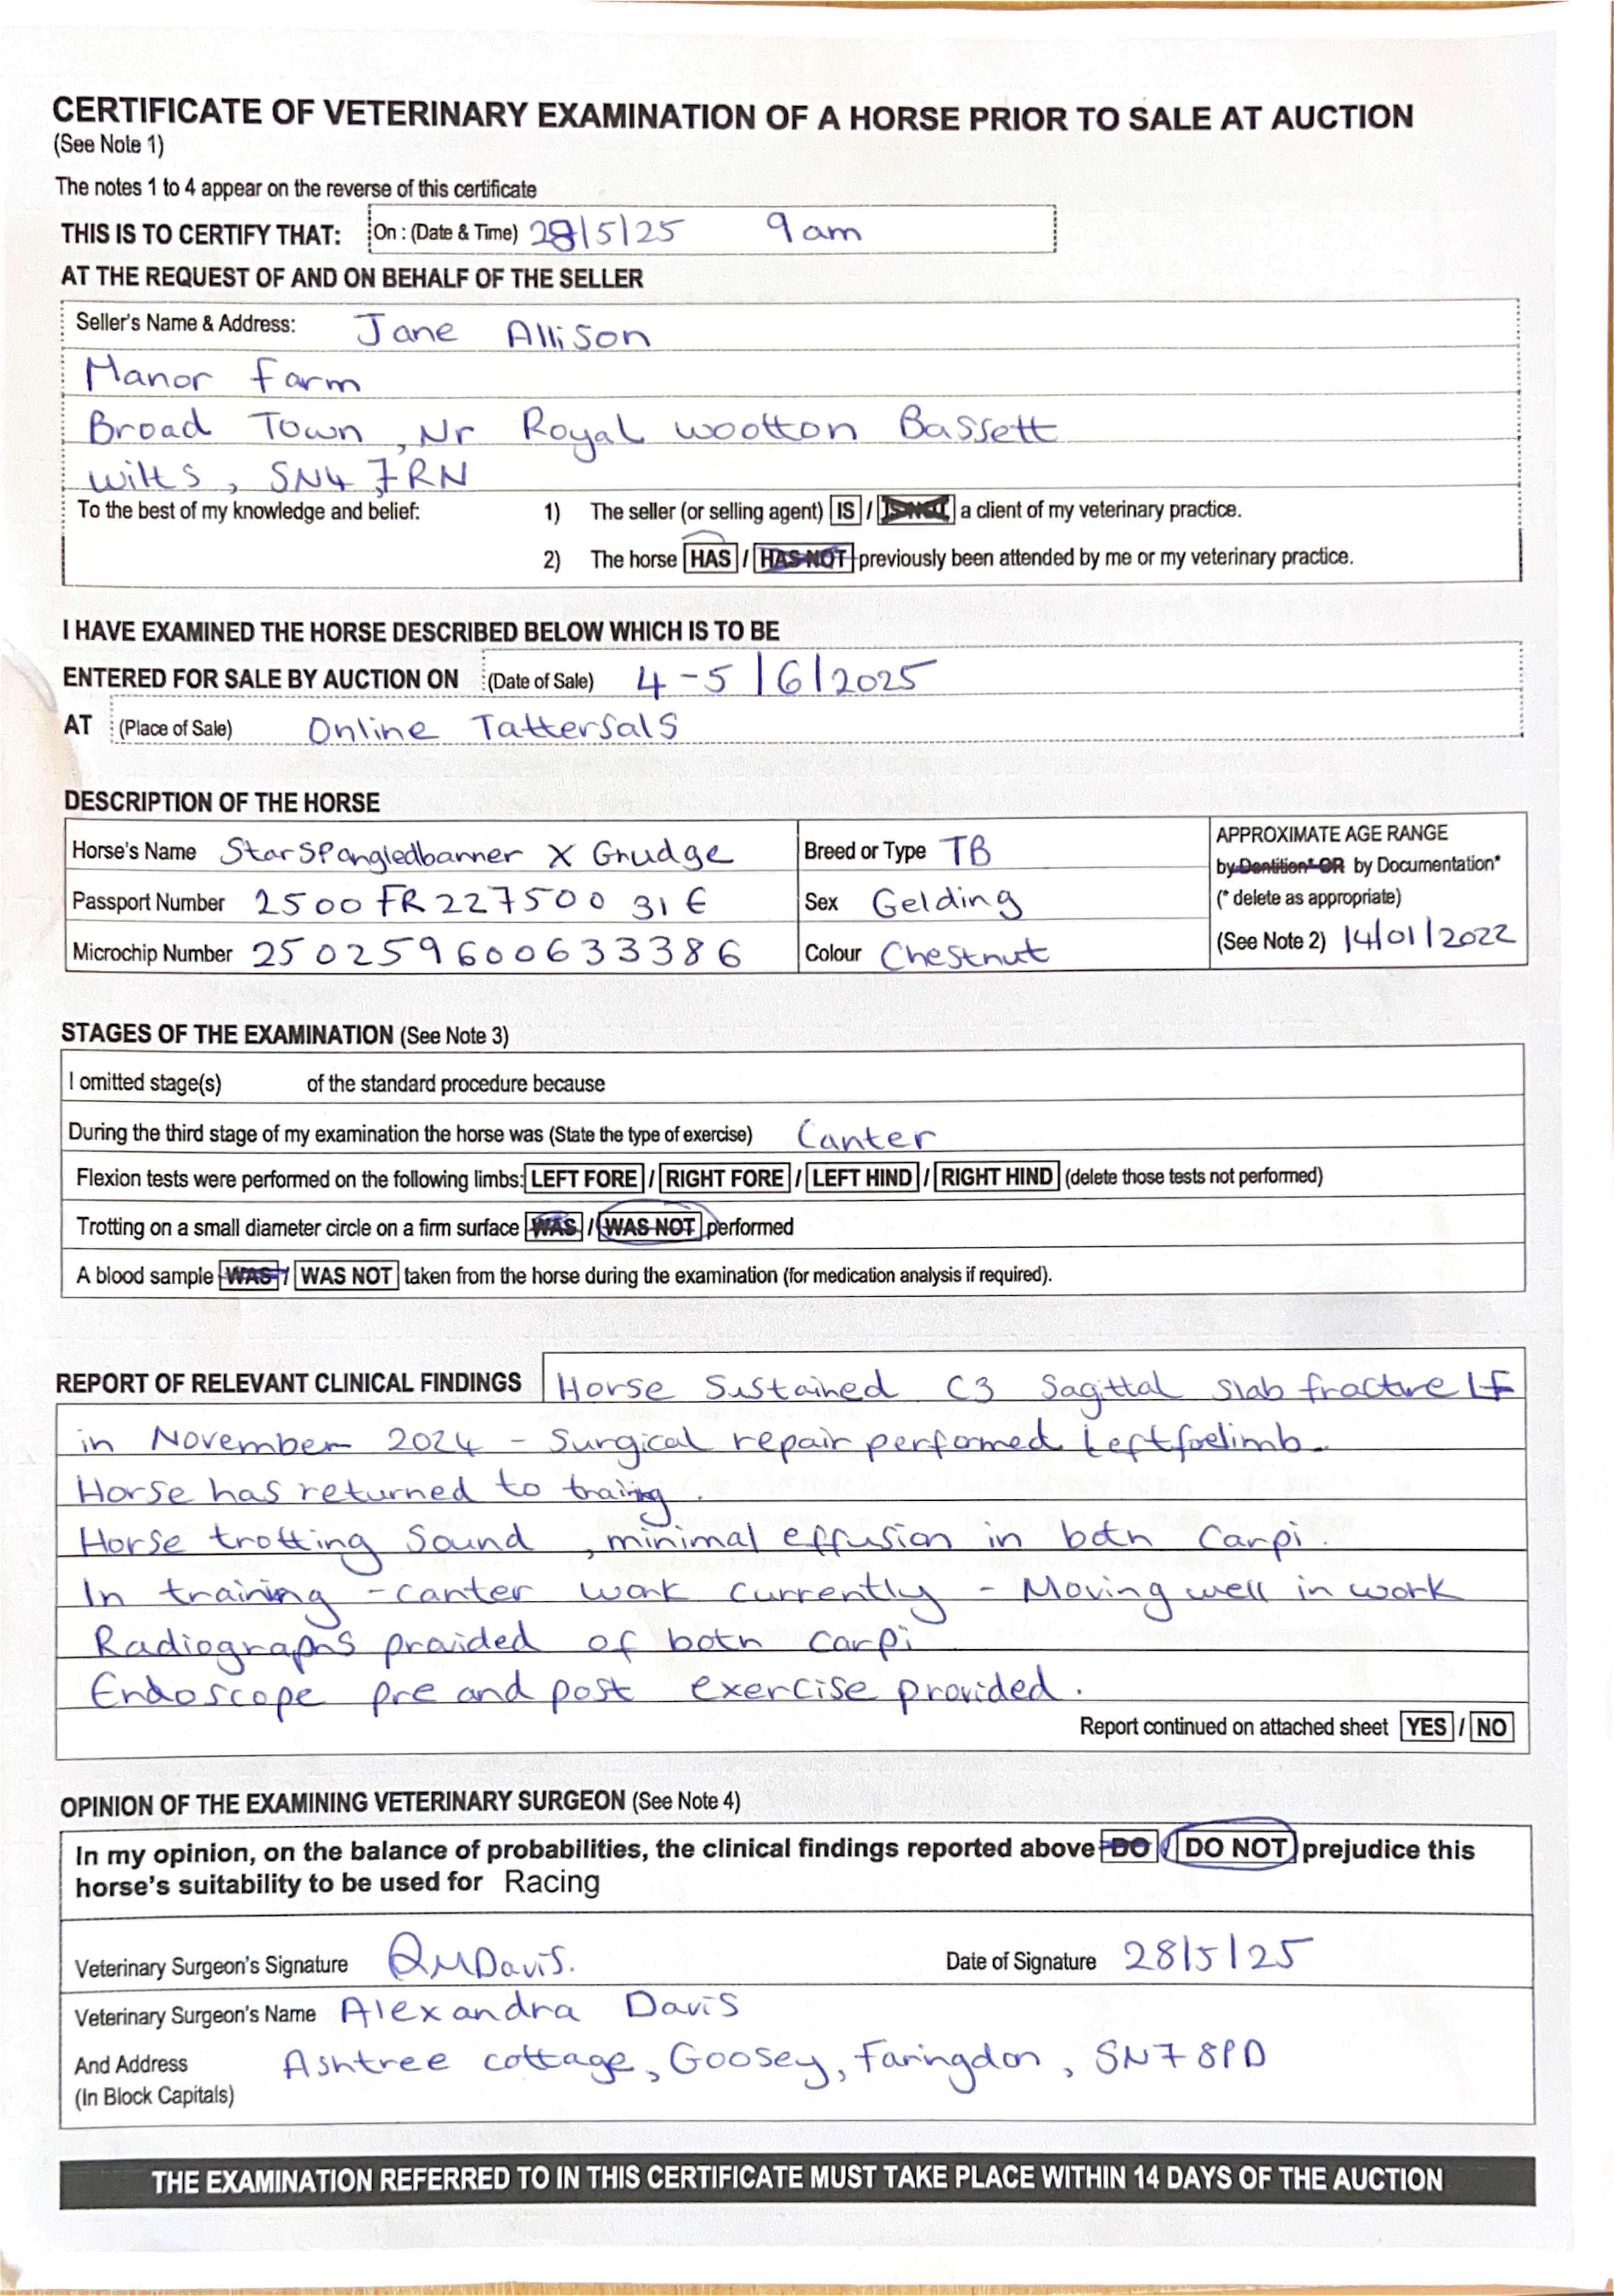 CERTIFICATE OF VETERINARY EXAMINATION OF A HORSE PRIOR TO SALE AT AUCTION
(See Note 1)
The notes 1 to 4 appear on the reverse of this certificate
THIS IS TO CERTIFY THAT: On : (Date & Time) 28/5/25 9am
AT THE REQUEST OF AND ON BEHALF OF THE SELLER
Seller's Name & Address: Jane Allison
Manor Farm
Broad Town, Nr Royal wootton Bassett
wilts, SN4 7RN
To the best of my knowledge and belief: 1) The seller (or selling agent) IS / IS NOT a client of my veterinary practice.
2) The horse HAS / HAS NOT previously been attended by me or my veterinary practice.
I HAVE EXAMINED THE HORSE DESCRIBED BELOW WHICH IS TO BE
ENTERED FOR SALE BY AUCTION ON (Date of Sale) 4-5/6/2025
AT (Place of Sale) Online Tattersals
DESCRIPTION OF THE HORSE
Horse's Name Starspangledbanner X Grudge Breed or Type TB APPROXIMATE AGE RANGE
by Dentition* OR by Documentation*
Passport Number 2500FR22750031E Sex Gelding (* delete as appropriate)
Microchip Number 250259600633386 Colour Chestnut (See Note 2) 14/01/2022
STAGES OF THE EXAMINATION (See Note 3)
I omitted stage(s) of the standard procedure because
During the third stage of my examination the horse was (State the type of exercise) Canter
Flexion tests were performed on the following limbs: LEFT FORE / RIGHT FORE / LEFT HIND / RIGHT HIND (delete those tests not performed)
Trotting on a small diameter circle on a firm surface WAS / WAS NOT performed
A blood sample WAS / WAS NOT taken from the horse during the examination (for medication analysis if required).
REPORT OF RELEVANT CLINICAL FINDINGS Horse Sustained C3 Sagittal slab fracture LF
in November 2024 - Surgical repair performed Left forelimb.
Horse has returned to training.
Horse trotting Sound, minimal effusion in both Carpi.
In training - canter work currently - Moving well in work
Radiographs provided of both carpi
Endoscope pre and post exercise provided.
Report continued on attached sheet YES / NO
OPINION OF THE EXAMINING VETERINARY SURGEON (See Note 4)
In my opinion, on the balance of probabilities, the clinical findings reported above DO / DO NOT prejudice this
horse's suitability to be used for Racing
Veterinary Surgeon's Signature Davis. Date of Signature 28/5/25
Veterinary Surgeon's Name Alexandra Davis
And Address Ashtree cottage, Goosey, Faringdon, SN7 8PD
(In Block Capitals)
THE EXAMINATION REFERRED TO IN THIS CERTIFICATE MUST TAKE PLACE WITHIN 14 DAYS OF THE AUCTION